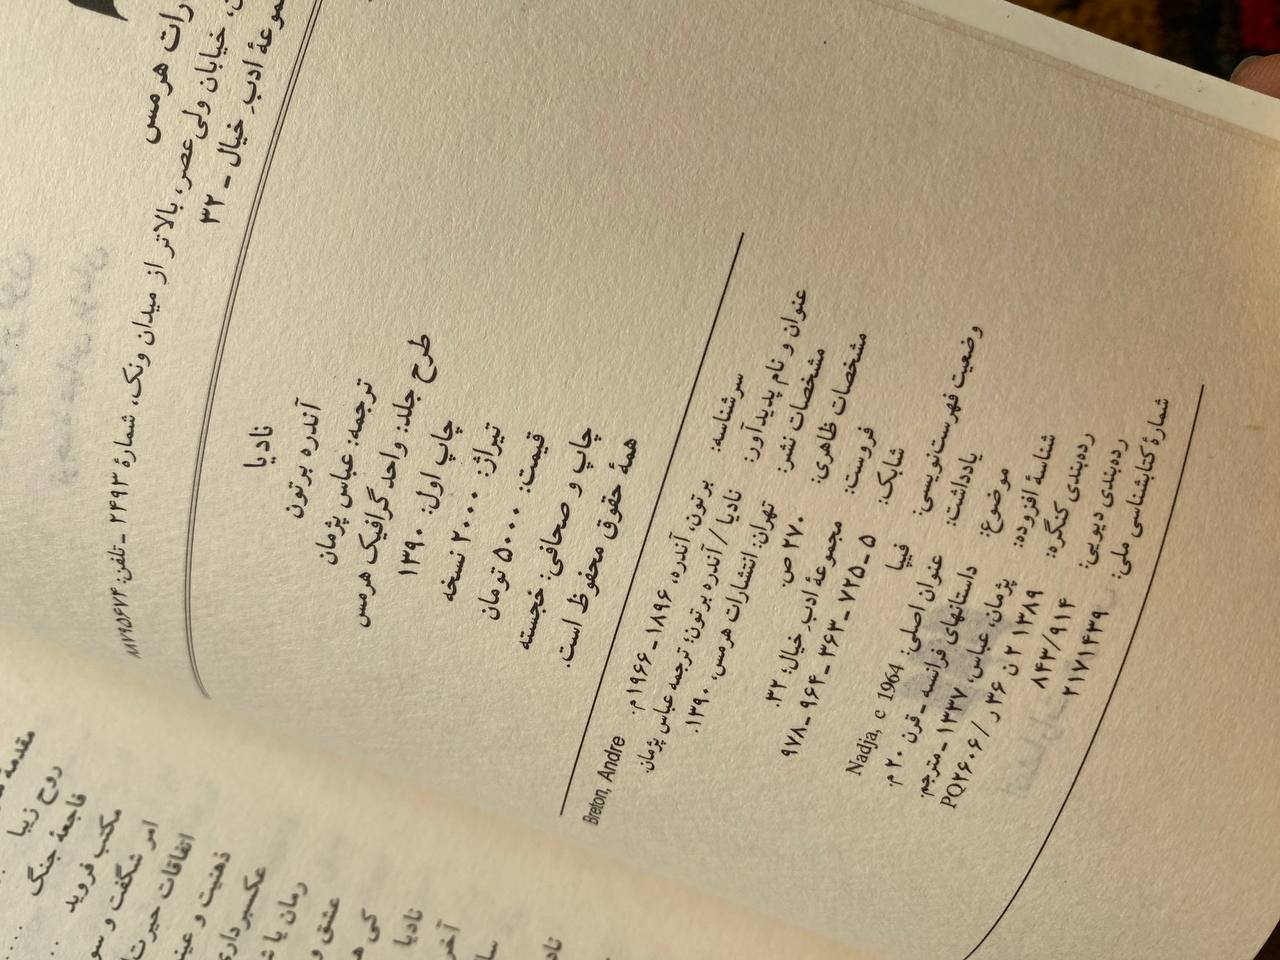 رات هرمس
، خیابان ولی‌عصر، بالاتر از میدان ونک، شمارهٔ ۲۴۹۳ ـ تلفن: ۸۸۷۹۵۶۷۴
موعهٔ ادب خیال ـ ۳۲
نادیا
آندره برتون
ترجمه: عباس پژمان
طرح جلد: واحد گرافیک هرمس
چاپ اول: ۱۳۹۰
تیراژ: ۲۰۰۰ نسخه
قیمت: ۵۰۰۰ تومان
چاپ و صحافی: خجسته
همهٔ حقوق محفوظ است.
سرشناسه: برتون، آندره، ۱۸۹۶ـ۱۹۶۶ م. Breton, Andre
عنوان و نام پدیدآور: نادیا / آندره برتون؛ ترجمه عباس پژمان.
مشخصات نشر: تهران: انتشارات هرمس، ۱۳۹۰.
مشخصات ظاهری: ۲۷۰ ص.
فروست: مجموعهٔ ادب خیال؛ ۳۲.
شابک: ۹۷۸ـ۹۶۴ـ۳۶۳ـ۷۲۵ـ۵
وضعیت فهرست‌نویسی: فیپا
یادداشت: عنوان اصلی: Nadja, c 1964
موضوع: داستانهای فرانسه ـ قرن ۲۰ م.
شناسهٔ افزوده: پژمان، عباس، ۱۳۳۷ ـ مترجم.
رده‌بندی کنگره: PQ۲۶۰۶/ر ۳۶ ن ۲ ۱۳۸۹
رده‌بندی دیویی: ۸۴۳/۹۱۴
شمارهٔ کتابشناسی ملی: ۲۱۷۱۴۳۹
مقدمهٔ
روح زیبا
فاجعهٔ جنگ
مکتب فروید
امر شگفت و سو
اتفاقات حیرت
ذهنیت و عین
عکسبرداری
رمان یا
عشق و
نادیا
کی ه
آخر